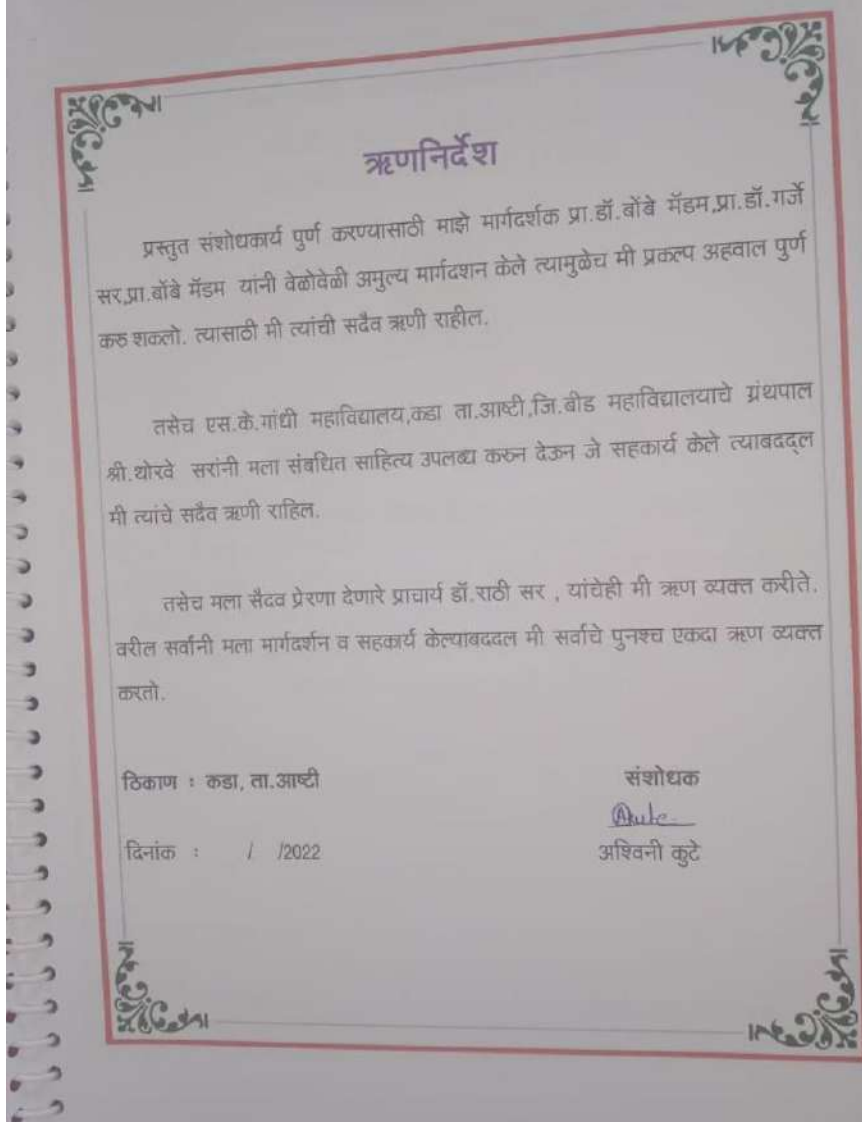 ऋणनिर्देश
प्रस्तुत संशोधकार्य पुर्ण करण्यासाठी माझे मार्गदर्शक प्रा.डॉ.बोंबे मॅडम,प्रा.डॉ.गर्जे
सर,प्रा.बोंबे मॅडम यांनी वेळोवेळी अमुल्य मार्गदशन केले त्यामुळेच मी प्रकल्प अहवाल पुर्ण
करु शकलो. त्यासाठी मी त्यांची सदैव ऋणी राहील.
तसेच एस.के.गांधी महाविद्यालय,कडा ता.आष्टी,जि.बीड महाविद्यालयाचे ग्रंथपाल
श्री.थोरवे सरांनी मला संबधित साहित्य उपलब्ध करुन देऊन जे सहकार्य केले त्याबददल
मी त्यांचे सदैव ऋणी राहिल.
तसेच मला सैदव प्रेरणा देणारे प्राचार्य डॉ.राठी सर , यांचेही मी ऋण व्यक्त करीते.
वरील सर्वांनी मला मार्गदर्शन व सहकार्य केल्याबददल मी सर्वाचे पुनश्च एकदा ऋण व्यक्त
करतो.
ठिकाण : कडा, ता.आष्टी संशोधक
दिनांक : / /2022 अश्विनी कुटे